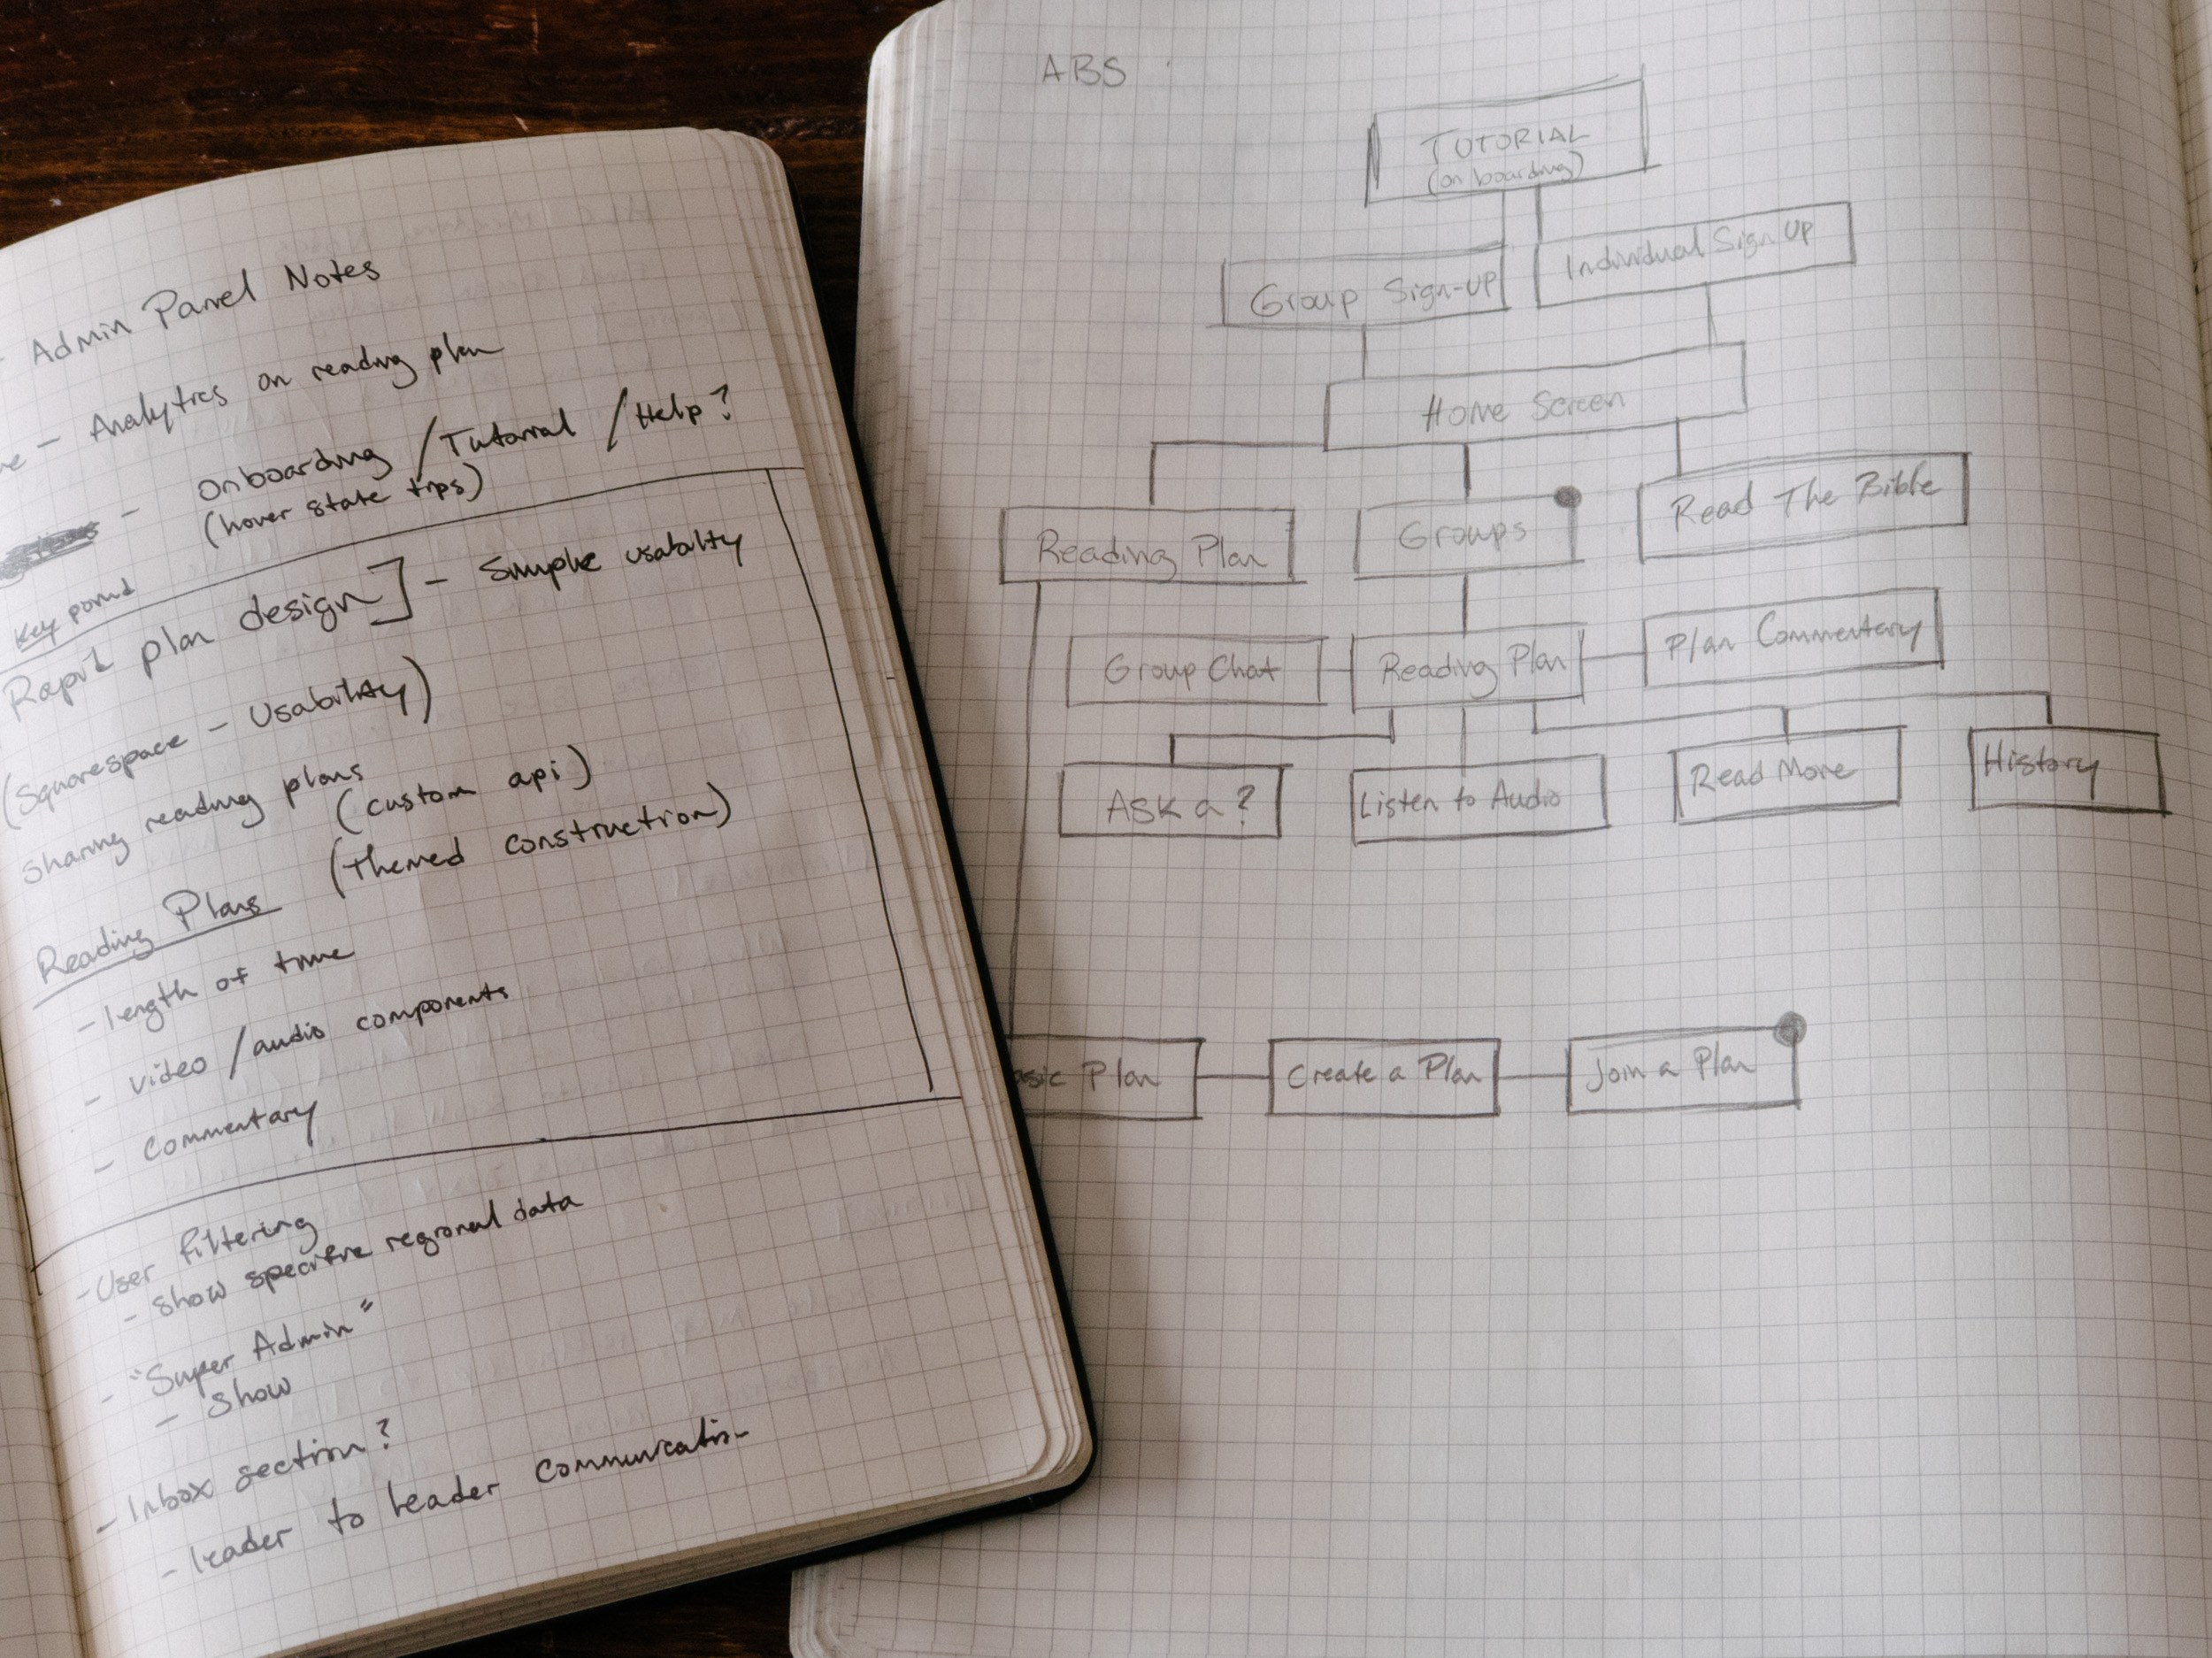 - Admin Panel Notes
- Analytics on reading plan
- Onboarding / Tutorial / Help?
(hover state tips)
Key point
Rapid plan design] - Simple usability
(Squarespace - Usability)
Sharing reading plans
(custom api)
Reading Plans (themed construction)
- length of time
- video / audio components
- Commentary
- User filtering
- Show specific regional data
- "Super Admin"
- Show
- Inbox section?
- leader to leader communication
ABS
TUTORIAL
(on boarding)
Group Sign-up
Individual Sign Up
Home Screen
Reading Plan
Groups
Read The Bible
Group Chat
Reading Plan
Plan Commentary
Ask a ?
Listen to Audio
Read More
History
asic Plan
Create a Plan
Join a Plan